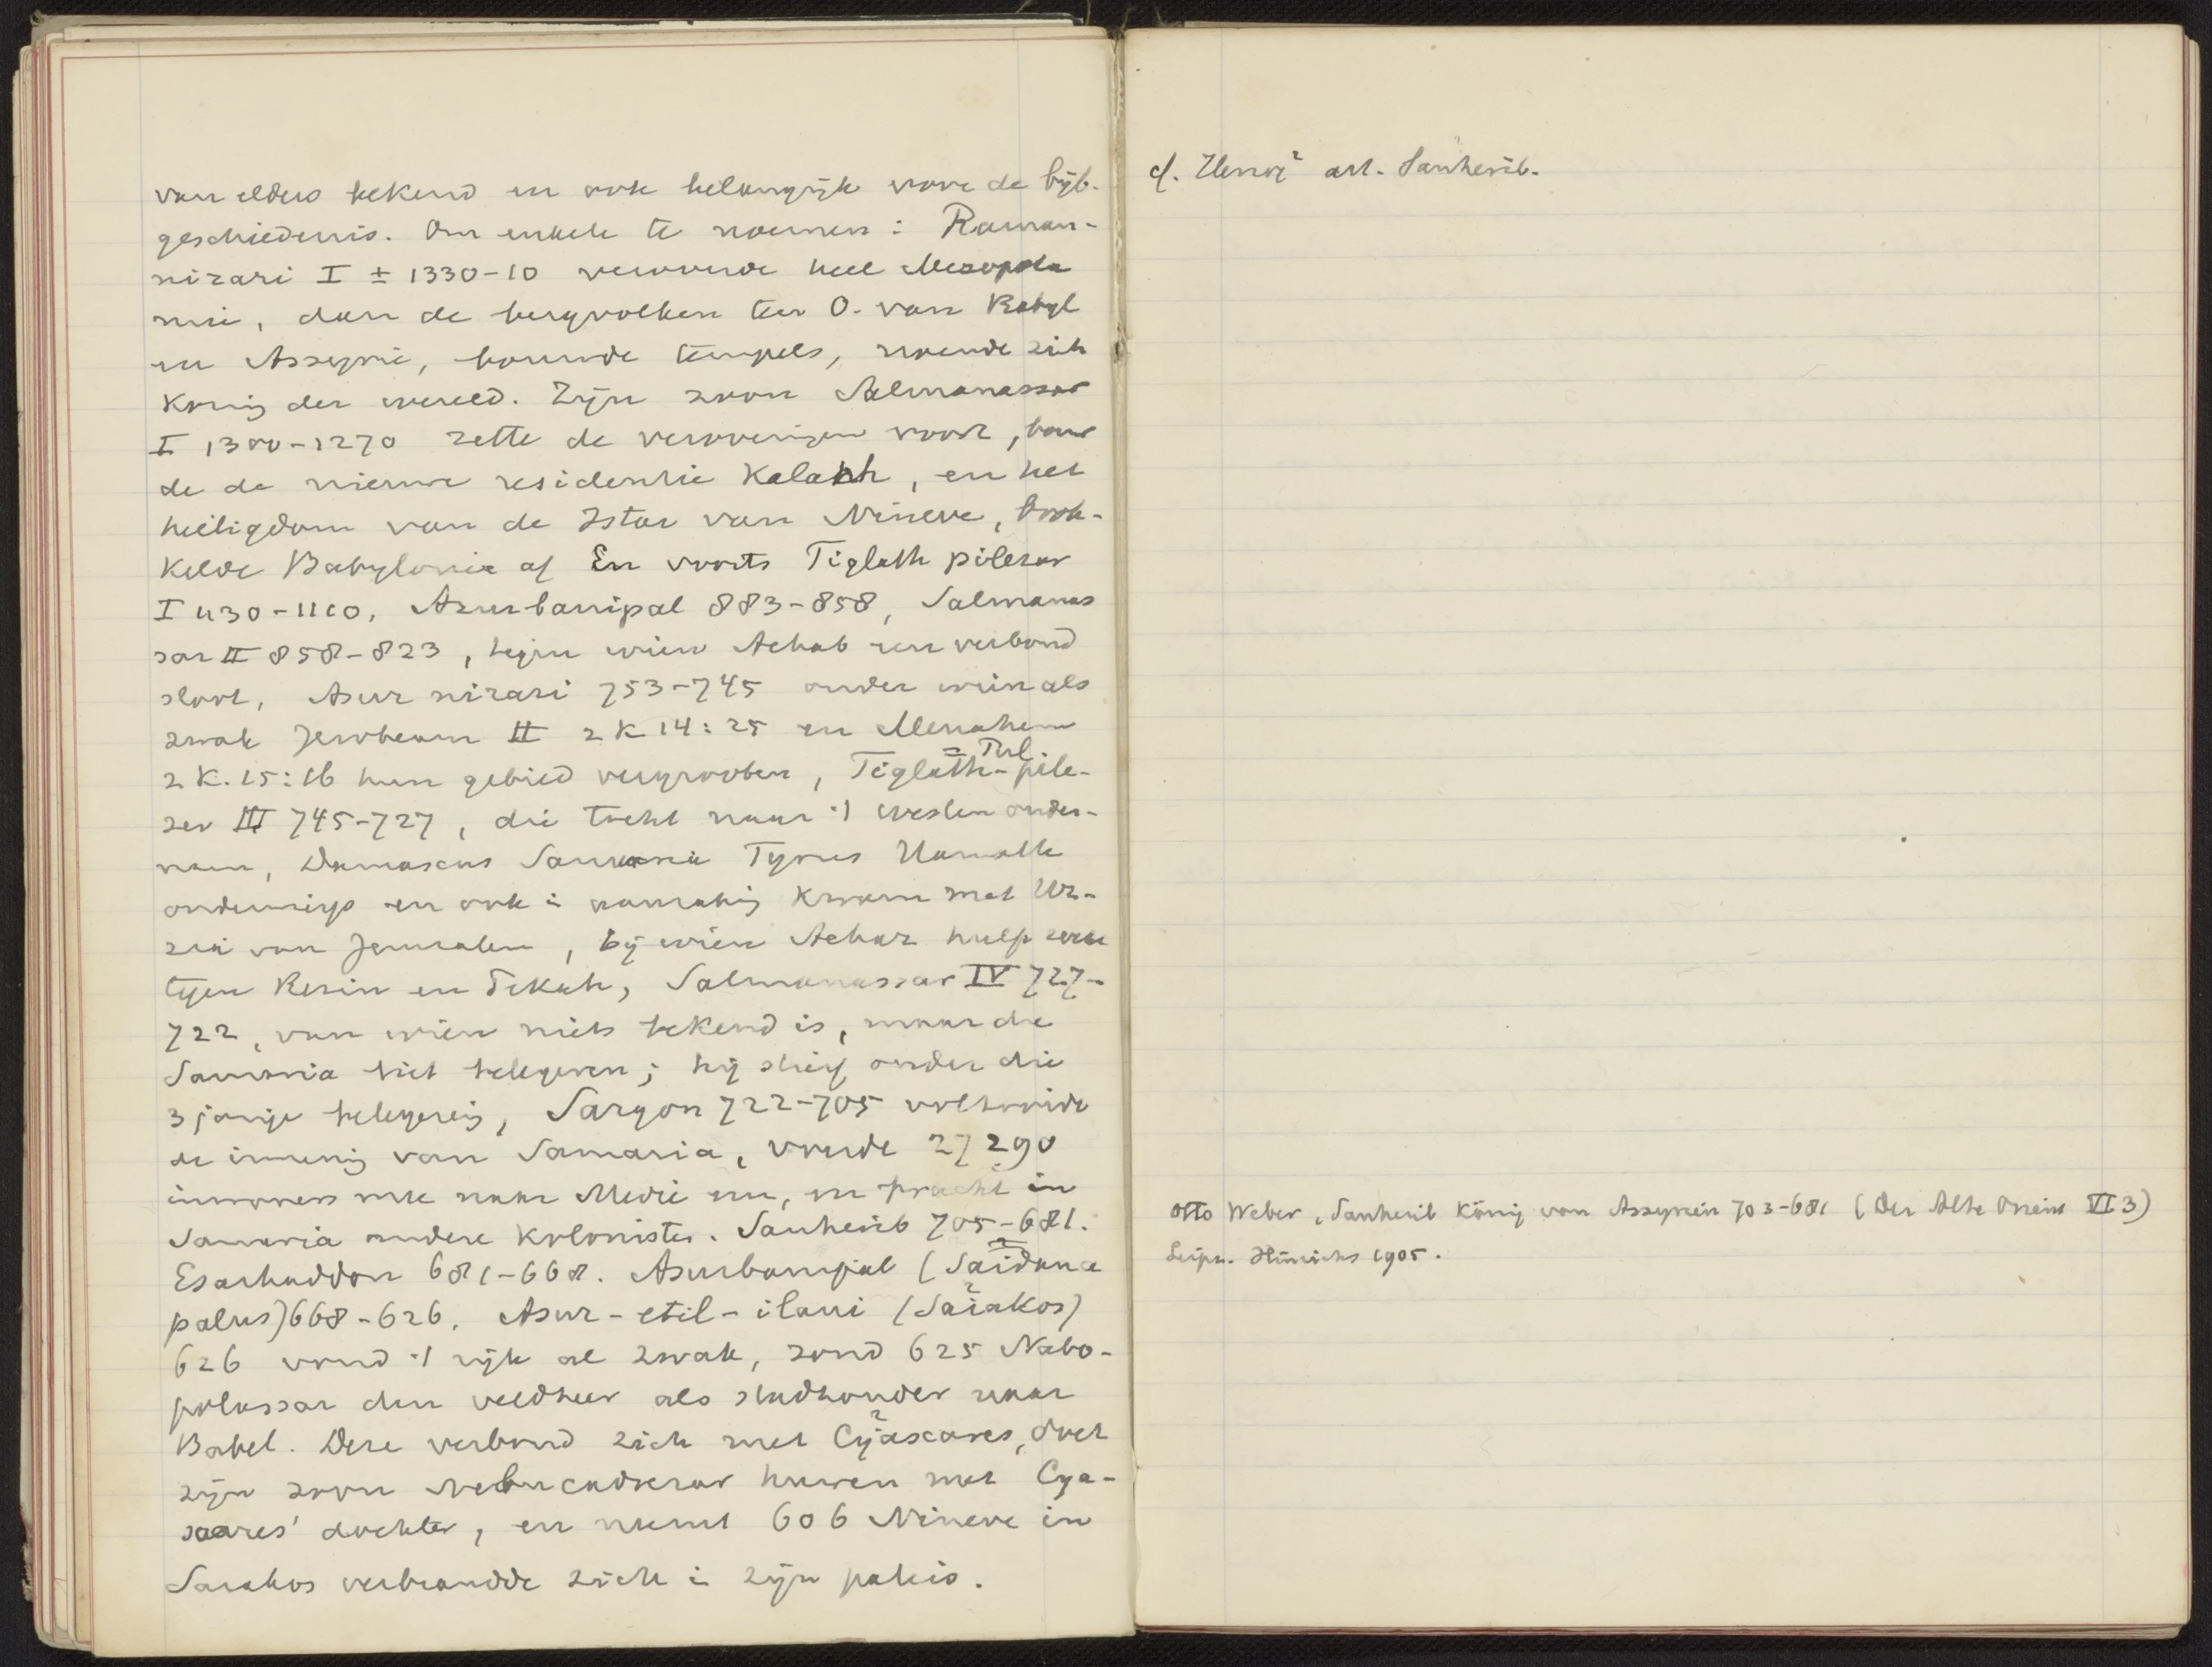 van elders bekend en ook belangrijk voor de bijb.
geschiedenis. Om enkele te noemen: Raman-
nirari I ± 1330-10 veroverde heel Mesopota
mië, dan de bergvolken ten O. van Babyl
en Assyrië, bouwde tempels, noemde zich
Koning der wereld. Zijn zoon Salmanassar
I 1300-1270 zette de veroveringen voort, bouw
de de nieuwe residentie Kalach, en het
heiligdom van de Istar van Nineve,
Babylonië af En voorts Tiglath pilesar
I 1130-1110, Asurbanipal 883-858, Salmanas
sar II 858-823, tegen wien Achab een verbond
sloot, Asur nirari 753-745 onder wien als
zwak Jerobeam II 2 K 14:25 en Menahem
2 K. 15:16 hun gebied vergrooten, Tiglath-pile-
= Pul
ser III 745-727, die tocht naar 't westen onder-
nam, Damascus Samaria Tyrus Hamath
onderwierp en ook in aanraking kwam met Uz-
zia van Jeruzalem, bij wien Achaz hulp zocht
tegen Rezin en Pekah, Salmanassar IV 727-
722, van wien niets bekend is, maar die
Samaria liet belegeren; hij stierf onder die
3 jarige belegering, Sargon 722-705 voltooide
de inneming van Samaria, voerde 27290
inwoners mee naar Medië enz, en bracht in
Samaria andere kolonisten. Sanherib 705-681.
Esarhaddon 681-668. Asurbanipal (Sardana
palus) 668-626. Asur-etil-ilani (Sarakos)
626 vond 't rijk al zwak, zond 625 Nabo-
polassar den veldheer als stadhouder naar
Babel. Deze verbond zich met Cyaxares, doet
zijn zoon Nebucadnezar huwen met Cya-
xares' dochter, en neemt 606 Nineve in
Sarakos verbrandde zich in zijn paleis.
cf. Herzog² art. Sanherib.
Otto Weber, Sanherib König von Assyrien 703-681 (Der Alte Orient VI 3)
Leipz. Hinrichs 1905.